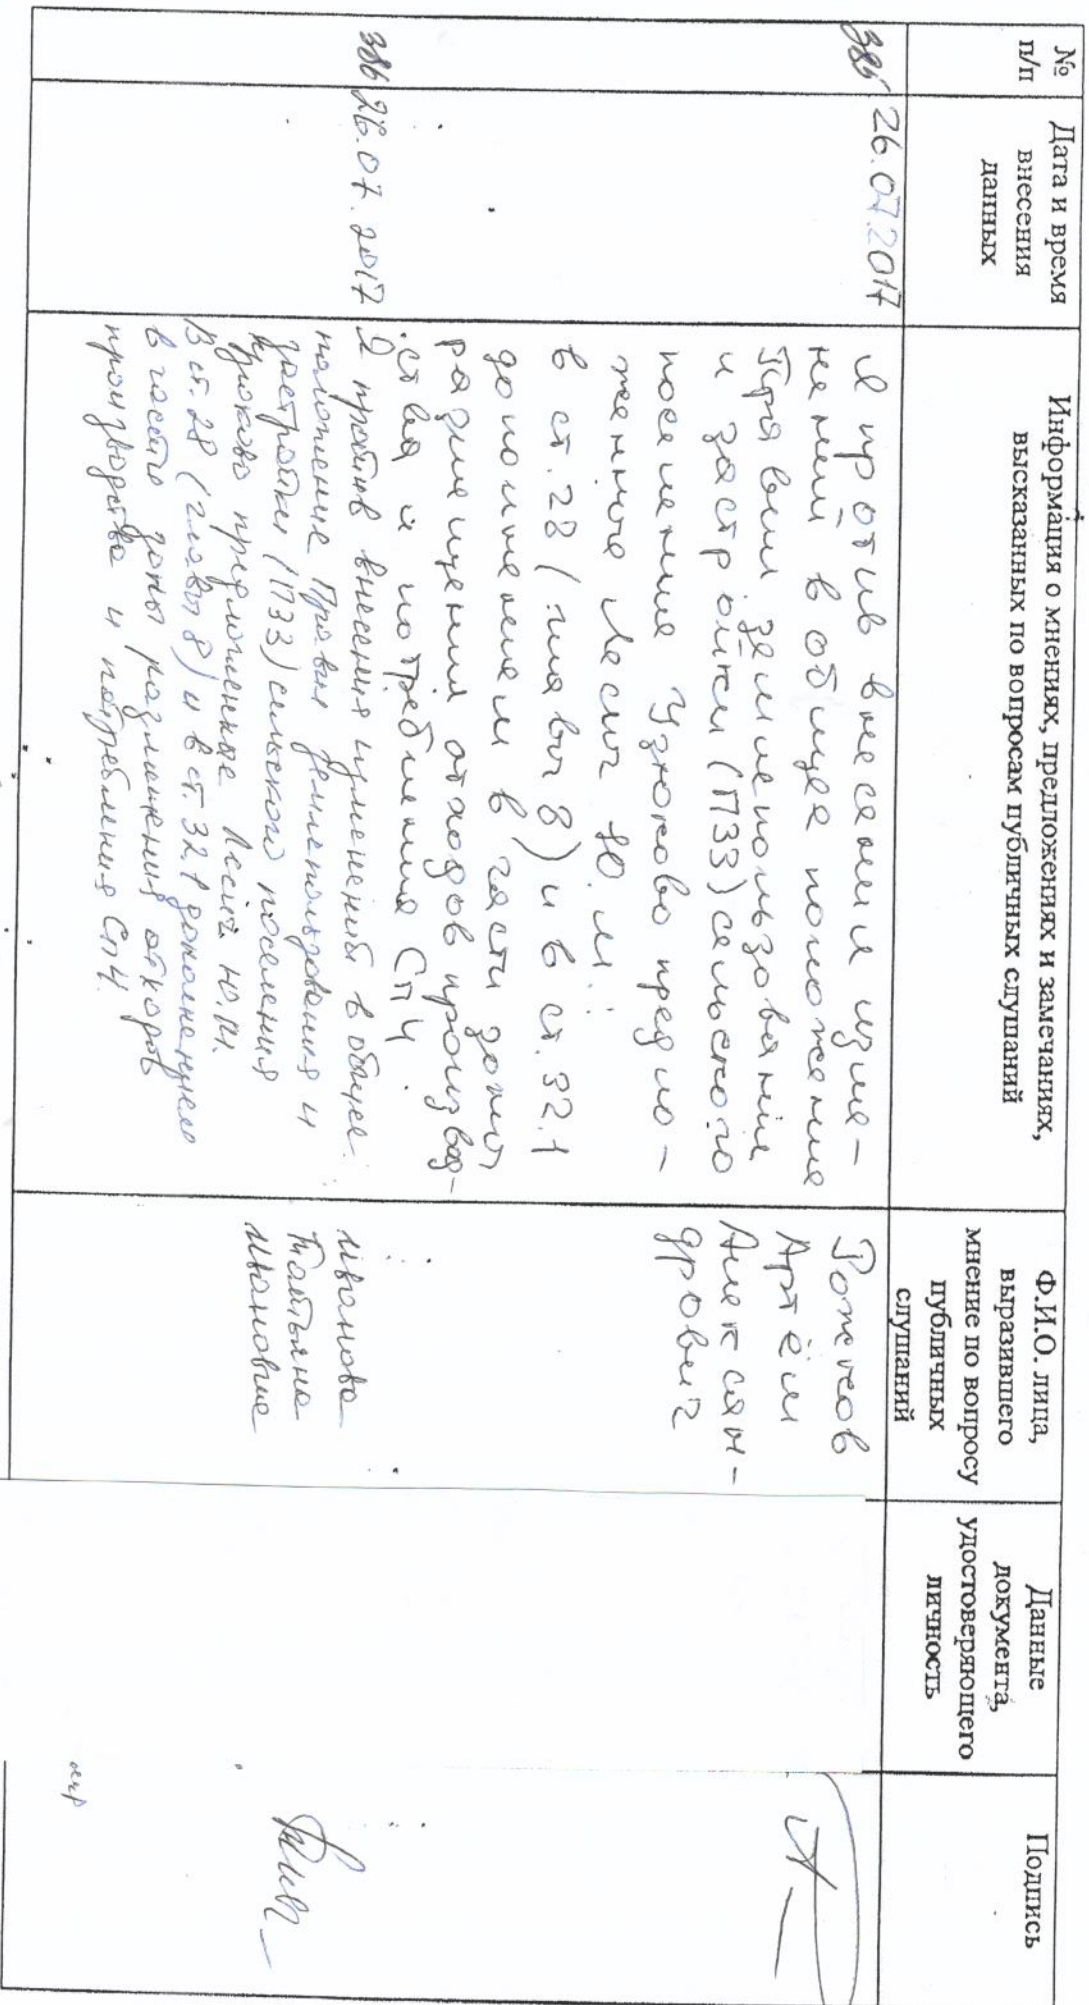 № п/п
Дата и время
внесения
данных
Информация о мнениях, предложениях и замечаниях,
высказанных по вопросам публичных слушаний
Ф.И.О. лица,
выразившего
мнение по вопросу
публичных
слушаний
Данные
документа,
удостоверяющего
личность
Подпись
385 26.07.2017
Я против внесения изме-
нений в общее положение
Правил землепользования
и застройки (ПЗЗ) сельского
поселения Узюково предло-
женное Лесик Ю.М.
в ст. 28 (главы 8) и в ст. 32.1
дополнением в части зоны
размещения отходов производ-
ства и потребления СП4.
Артём
Алексан-
дрович
386 26.07.2017
Я против внесения изменений в общее
положение Правил землепользования и
застройки (ПЗЗ) сельского поселения
Узюково предложенное Лесик Ю.М.
В ст. 28 (главы 8) и в ст. 32.1 дополнением
в части зоны размещения отходов
производства и потребления СП4.
Иванова
Татьяна
Ивановна